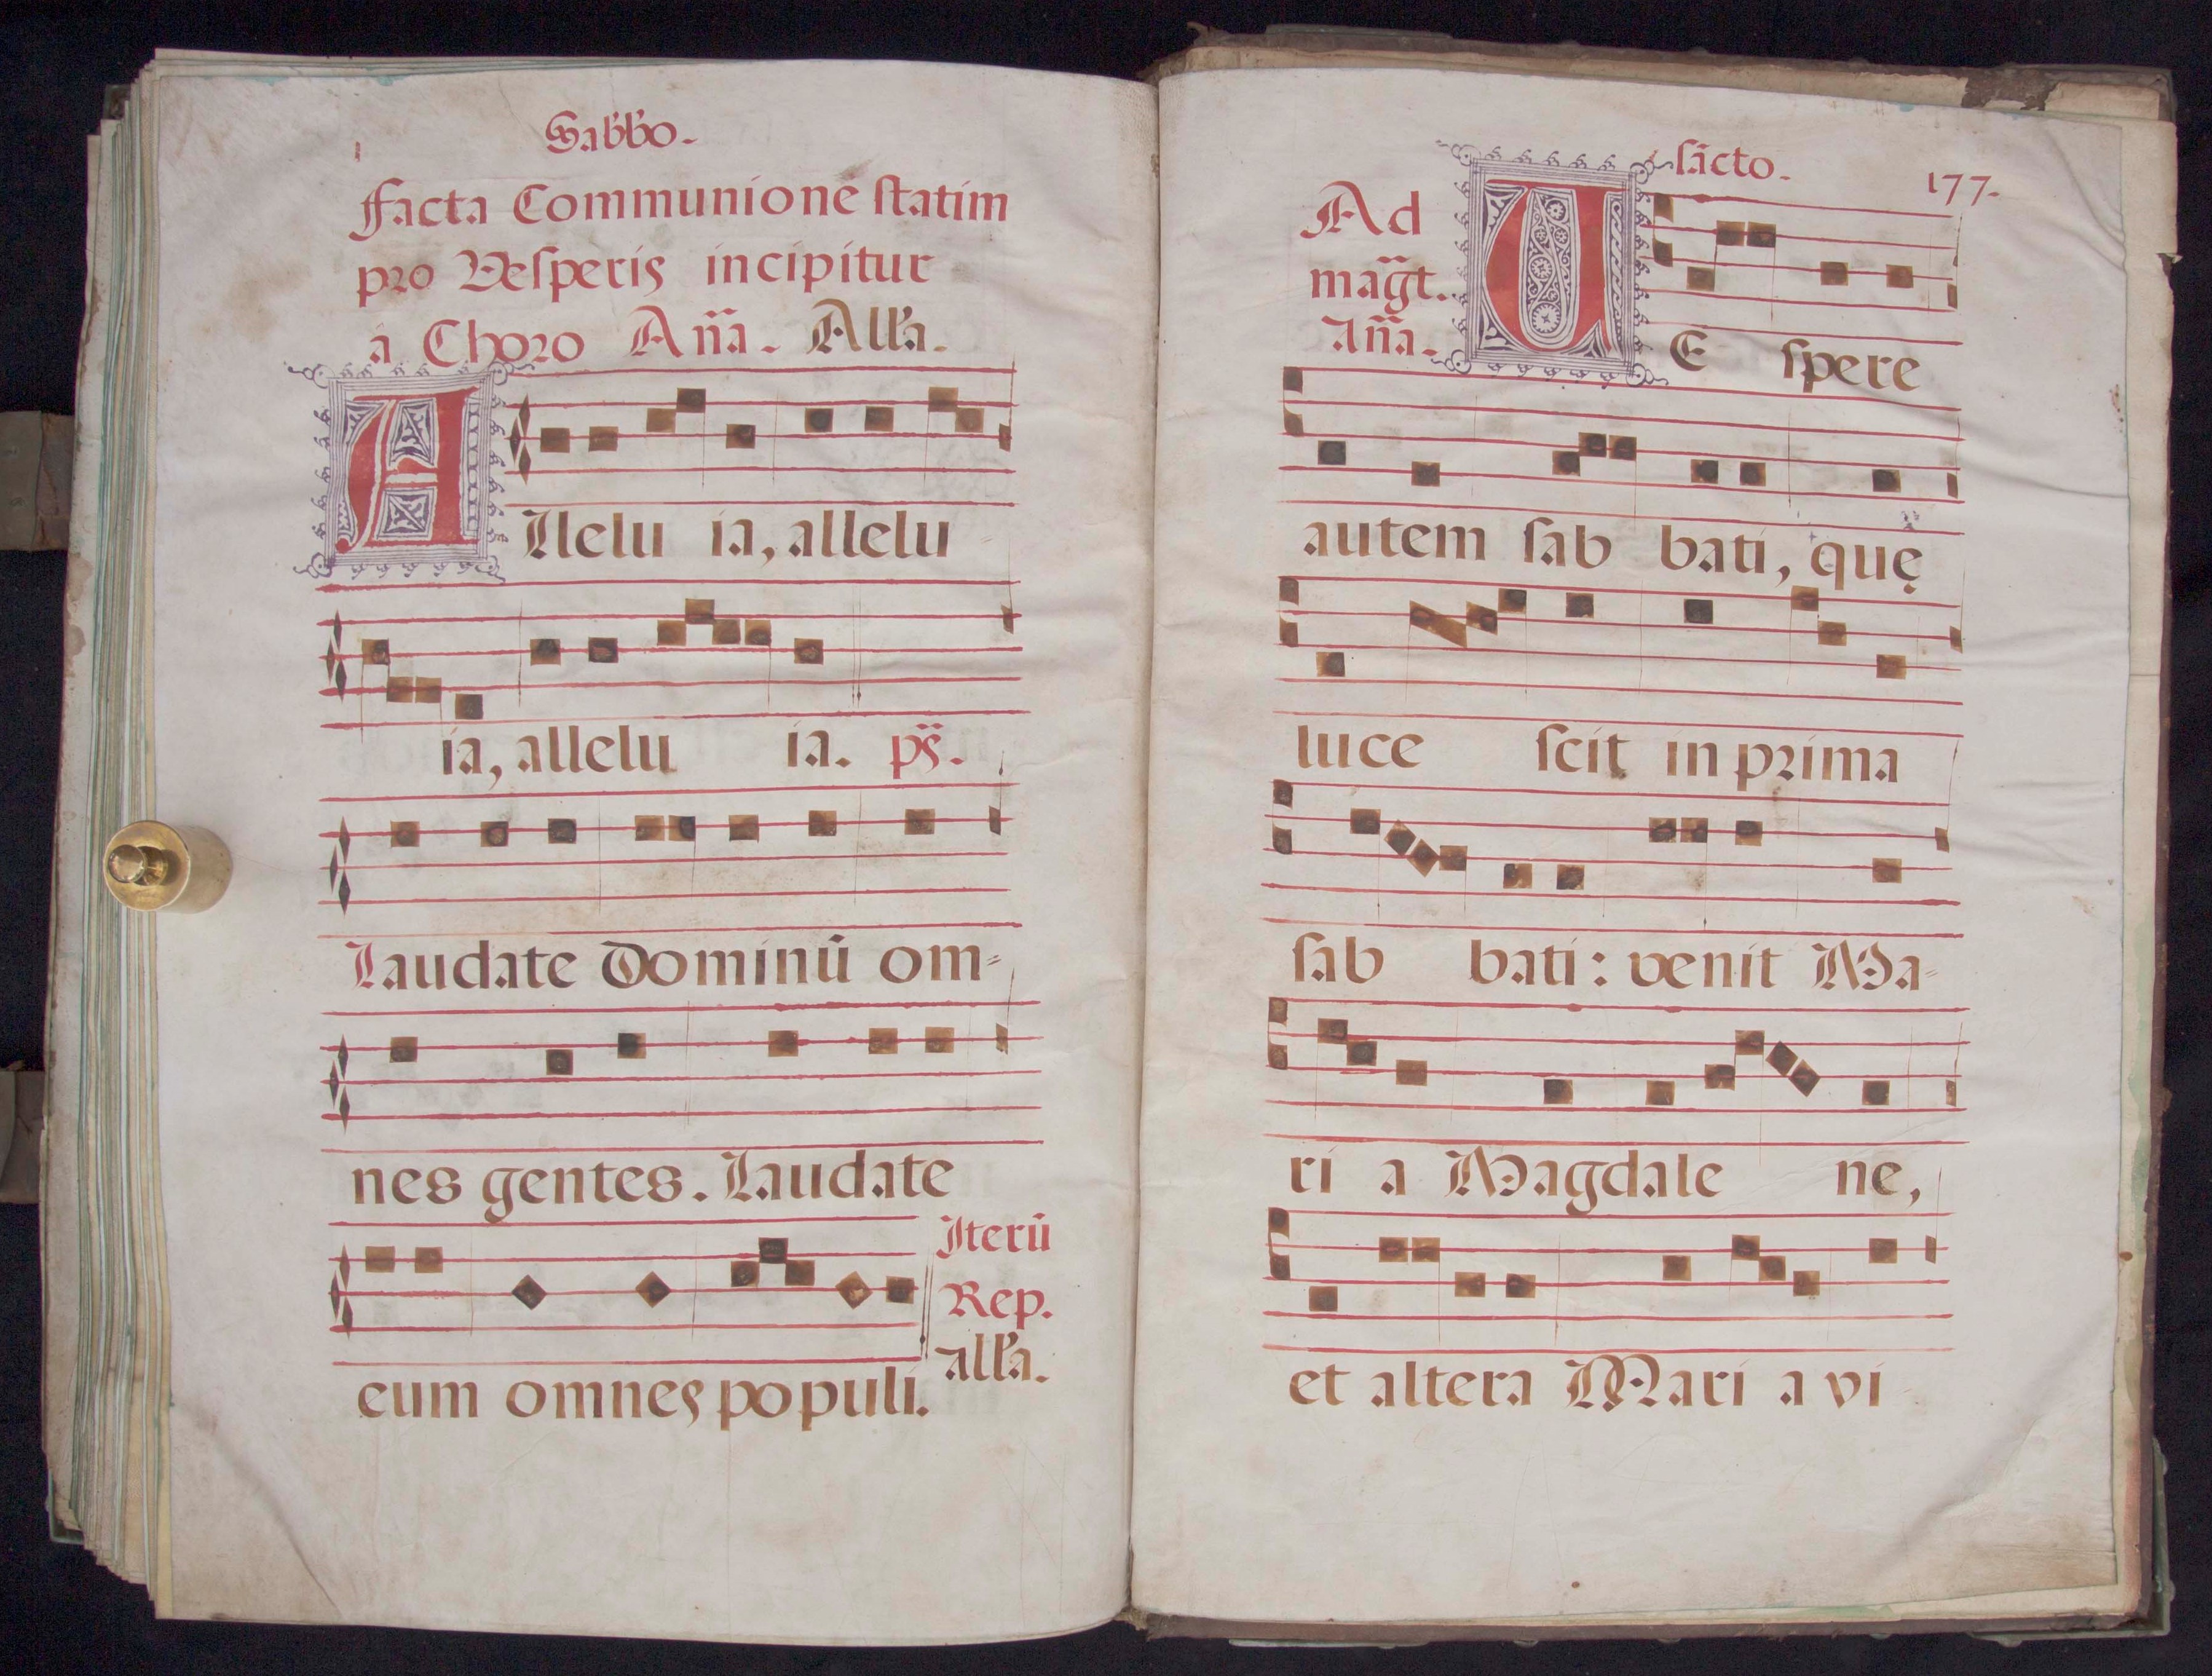 Sabb'o.
Facta Communione statim
pro Vesperis incipitur
a Choro Añа. All'a.
Allelu ia, allelu
ia, allelu ia. ps.
Laudate Dominū om=
nes gentes. Laudate
eum omnes populi.
Iterū
Rep.
all'a.
sācto.
177.
Ad
mag̃t.
Aña.
VE spere
autem sab bati, quę
luce scit in prima
sab bati: venit Ma=
ri a Magdale ne,
et altera Mari a vi